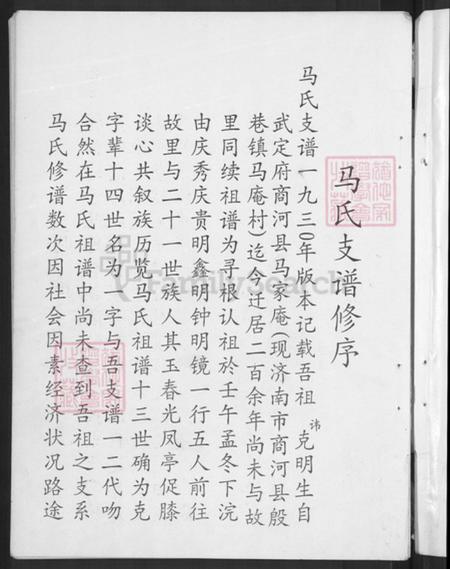 马氏支谱修序
马氏支谱一九三〇年版本记载吾祖讳克明生自
武定府商河县马家庵(现济南市商河县殷
巷镇马庵村)迄今迁居二百余年尚未与故
里同续祖谱为寻根认祖於壬午孟冬下浣
由庆秀庆贵明鑫明钟明镜一行五人前往
故里与二十一世族人其玉春光凤亭促膝
谈心共叙族历览马氏祖谱十三世确为克
字辈十四世名为一字与吾支谱一二代吻
合然在马氏祖谱中尚未查到吾祖之支系
马氏修谱数次因社会因素经济状况路途
FamilySearch